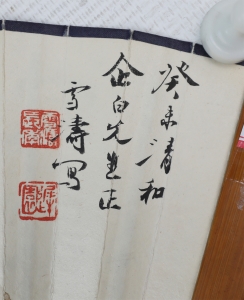 癸未清和
企白先生正
雪濤写